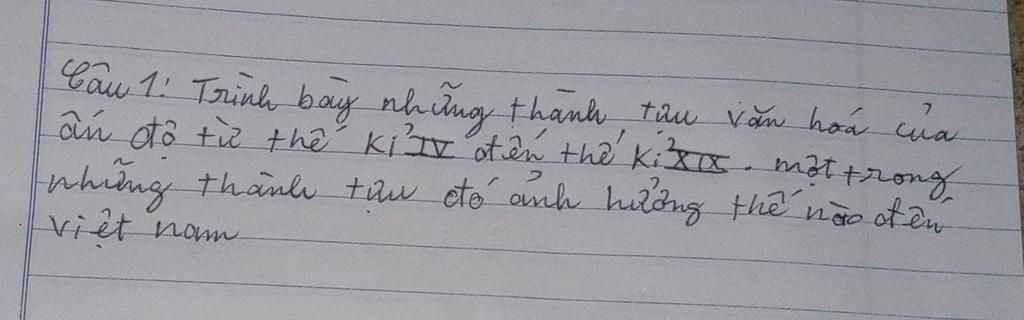 Câu 1: Trình bày những thành tựu văn hoá của
ấn độ từ thế kỉ IV đến thế kỉ XIX. một trong
những thành tựu đó ảnh hưởng thế nào đến
việt nam